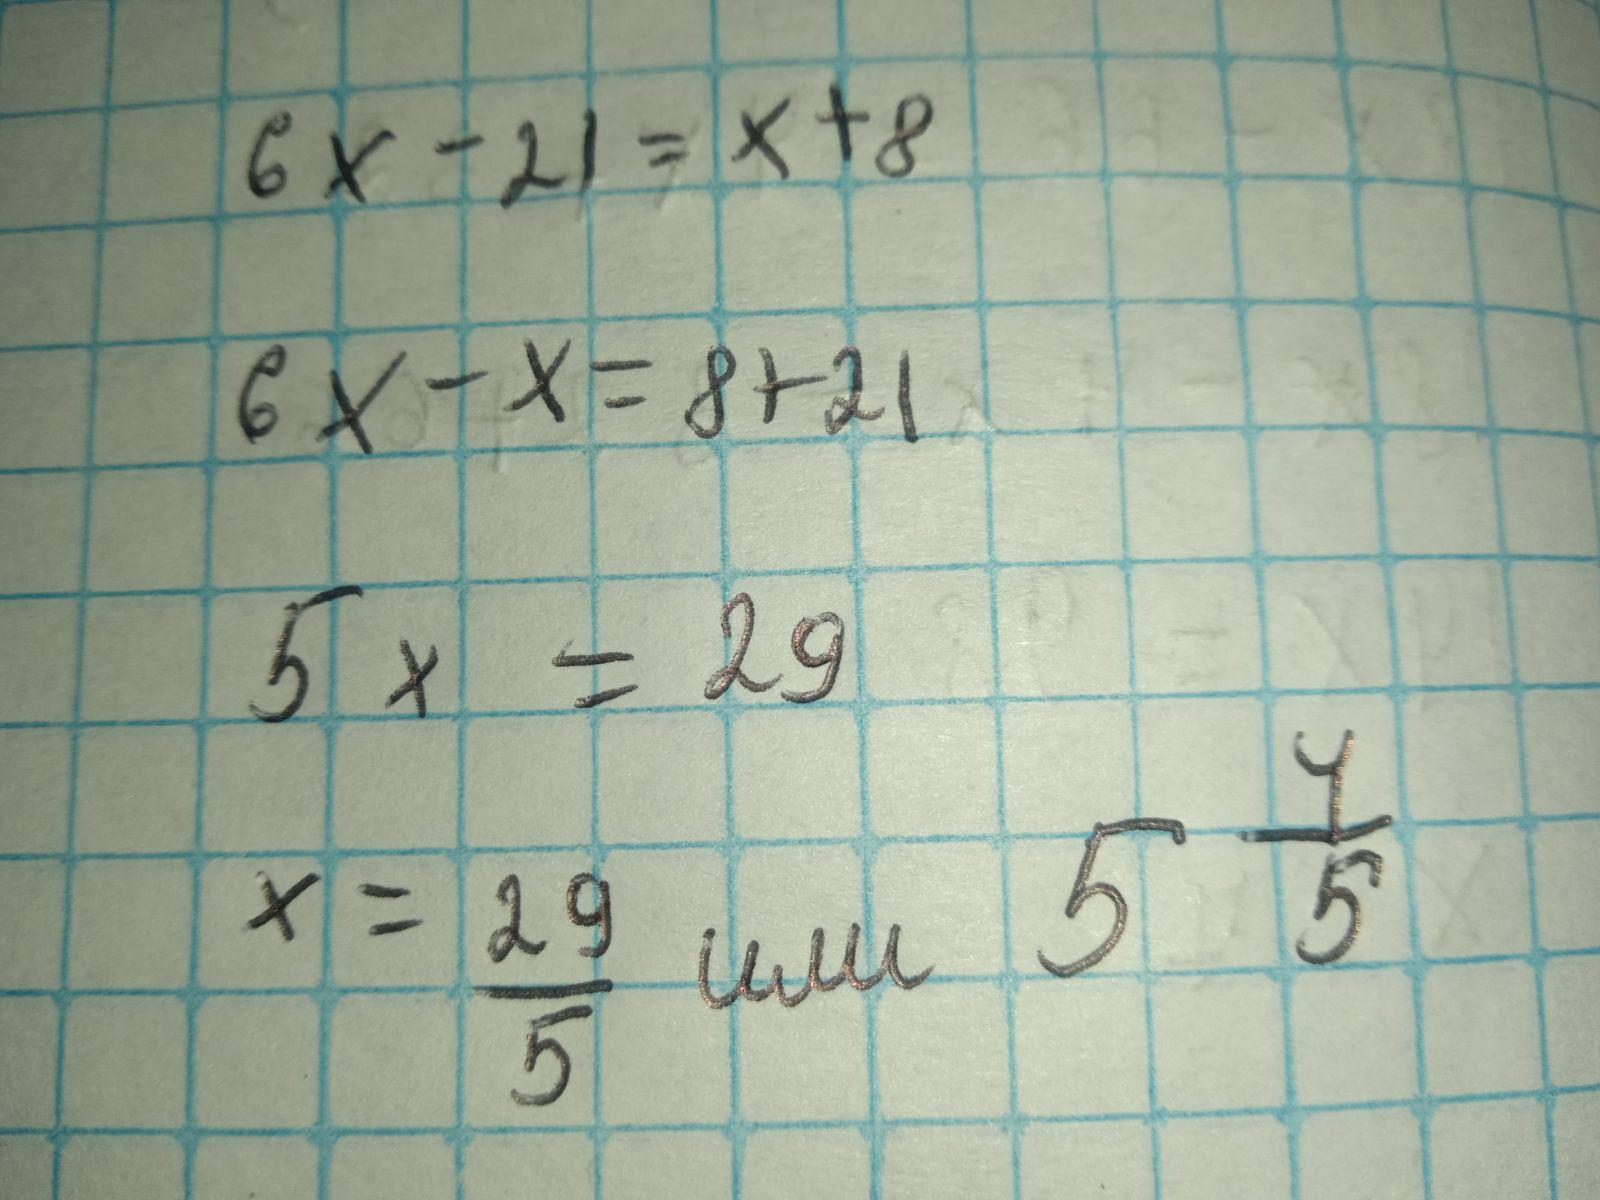 6x - 21 = x + 8
6x - x = 8 + 21
5x = 29
x = 29/5 или 5 4/5